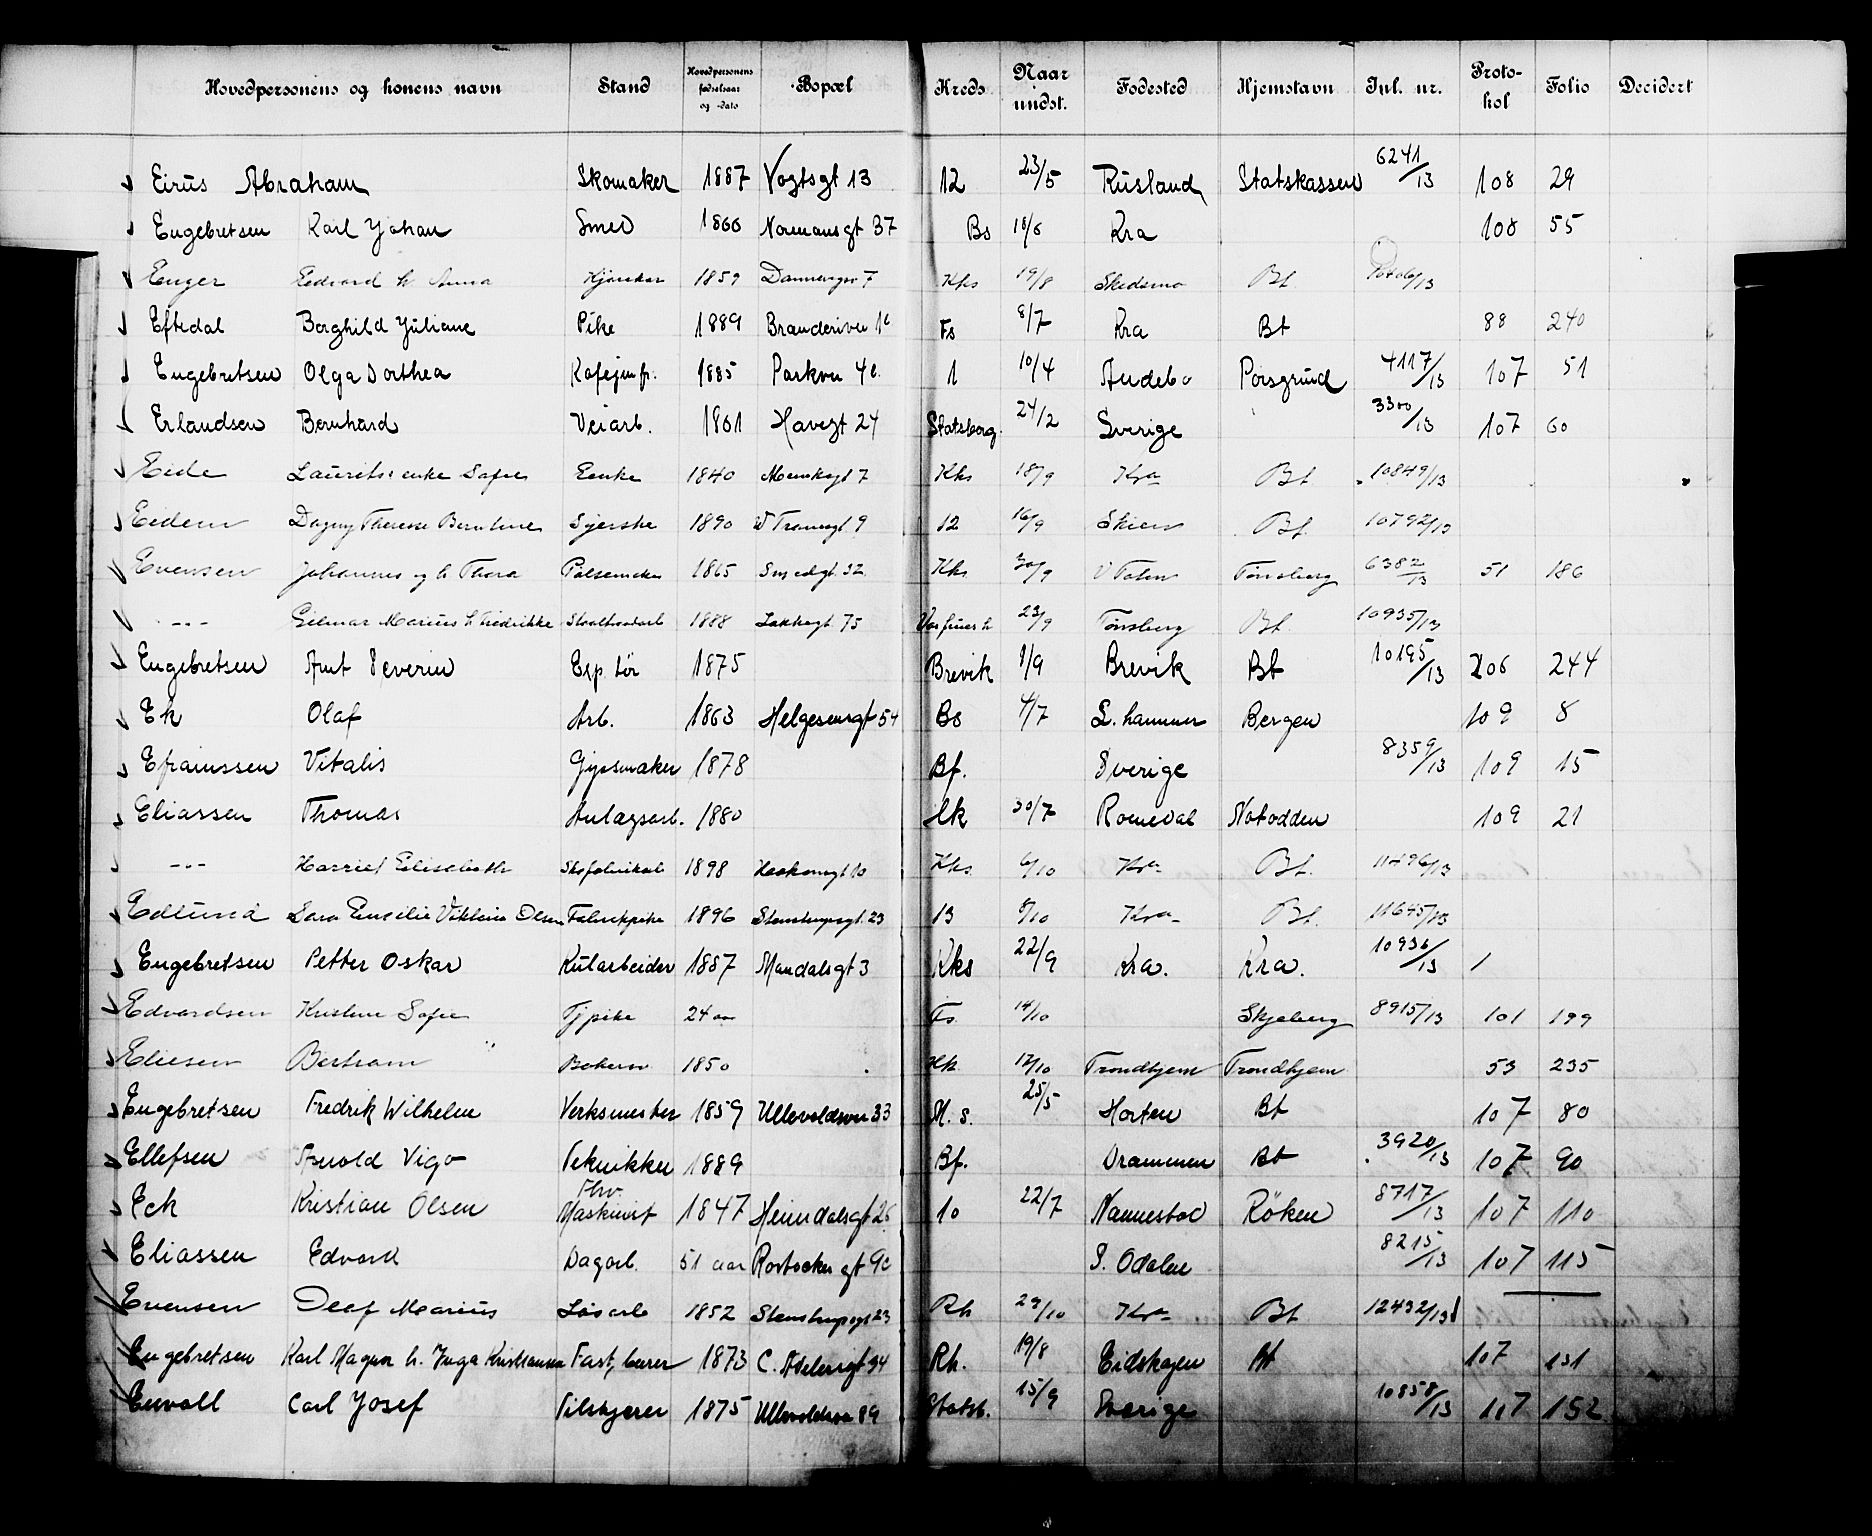 Hovedpersonens og konens navn Stand Hovedpersonens fødselsaar og -dato Bopæl Kreds Naar undst. Fødested Hjemstavn Jnl. nr. Proto-kol Folio Decidert
Eirus Abraham Skomaker 1887 Vogtsgt 13 12 23/5 Rusland Statskassen 6241/13 108 29
Engebretsen Karl Johan Smed 1866 Normansgt 37 Bs 18/6 Kra 108 55
Enger Edvard h Anna Kjørekar 1859 Kks 19/8 Skedsmo Bt.
Eftedal Borghild Juliane Pike 1889 Fs 8/7 Kra Bt 88 240
Engebretsen Olga Dorthea Kafejmfr. 1885 Parkvn 4c. 1 10/4 Andebo Porsgrund 4117/13 107 51
Erlandsen Bernhard Veiarb. 1861 Havegt 24 Statsborg. 24/2 Sverige 3300/13 107 60
Eide Laurits's enke Safie Enke 1840 Kks 18/9 Kra Bt 10849/13
Eidem Dagny Therese Berntine Syerske 1890 W Tranesgt 9 12 16/9 Skien Bt. 10792/13
Evensen Johannes og h Thora Pølsemaker 1865 Smedgt. 32 Kks 30/9 V Toten Tønsberg 6382/13 51 186
--- Hilmar Marius h Fredrikke 1888 Lakkegt 75 Vor frues k 23/9 Tønsberg Bt. 10935/13
Engebretsen Arnt Severin Exp. tør 1875 Brevik 1/9 Brevik Bt 10195/13 206 244
Ek Olaf Arb. 1863 Helgesensgt 54 Bs 4/7 L. hammer Bergen 109 8
Efraimssen Vitalis Gipsmaker 1878 Bf. Sverige 8359/13 109 15
Eliassen Thomas Anlægsarb. 1880 Uk 30/7 Romedal Notodden 109 21
--- Harriet Elisabeth Skofabrikarb 1898 Haakonsgt 10 Kks. 6/10 Kra Bt. 11496/13
Edlund Sara Emilie Viktoria Olsen Fabrikpike 1896 Stenstrupsgt. 23 13 8/10 Kra Bt. 11645/13
Engebretsen Petter Oskar Kularbeider 1887 Mandalsgt 3 Kks 22/9 Kra. Kra. 10936/13 /
Edvardsen Kristine Safie Tjpike 24 aar Fs. 14/10 Skjeberg 8915/13 101 199
Eliesen Bertram " Bokerm 1850 Uk 17/10 Trondhjem Trondhjem 53 235
Engebretsen Fredrik Wilhelm Verksmester 1859 Ullevoldsvn 33 M. s. 25/5 Horten Bt 107 80
Ellefsen Arnold Vigo Tekniker 1889 Bf. Drammen Bt 3920/13 107 90
Eck Kristian Olsen Fhv. Maskinist 1847 Heimdalsgt 26 10 22/7 Nannestad Røken 8717/13 107 110
Eliassen Edvard Dagarb. 51 aar Rostocker gt 9c S. Odalen 8215/13 107 115
Evensen Olaf Marius Løsarb 1852 Stenstrupsgt 23 Rh 29/10 Kra Bt 12432/13
Engebretsen Karl Magnus h. Inga Kristiansen Fast, bærer 1873 C. Adelersgt 34 Rh. 19/8 Eidskogen Bt 107 131
Envall Carl Josef Filskjærer 1875 Ullevoldsvn 89 Statsb. 15/9 Sverige 10858/13 107 152